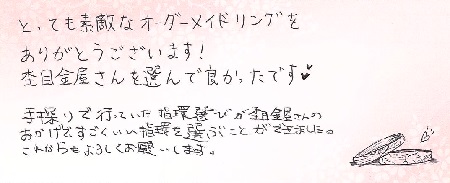 とっても素敵なオーダーメイドリングを
ありがとうございます!
杢目金屋さんを選んで良かったです♥
手探りで行っていた指環選びが杢目金屋さんの
おかげですごくいい指環を選ぶことができました。
これからもよろしくお願いします。